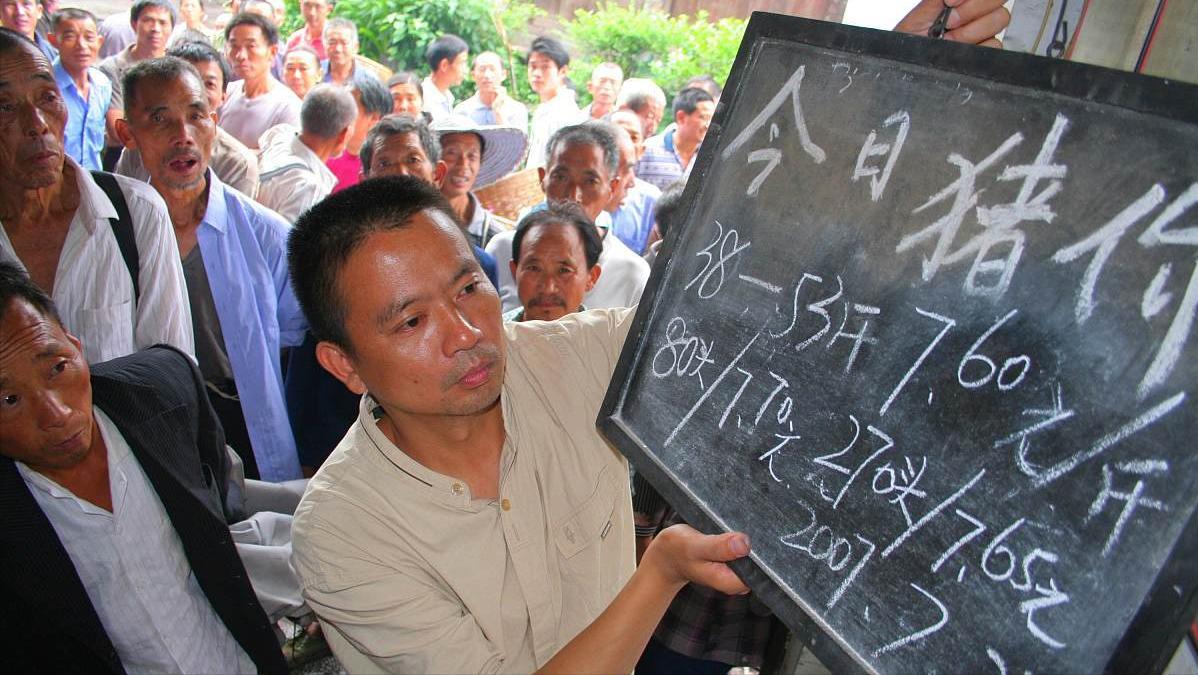 今日猪价
38—53斤 7.60元/斤
80头/7.70元 270头/7.65元
2007.7.2